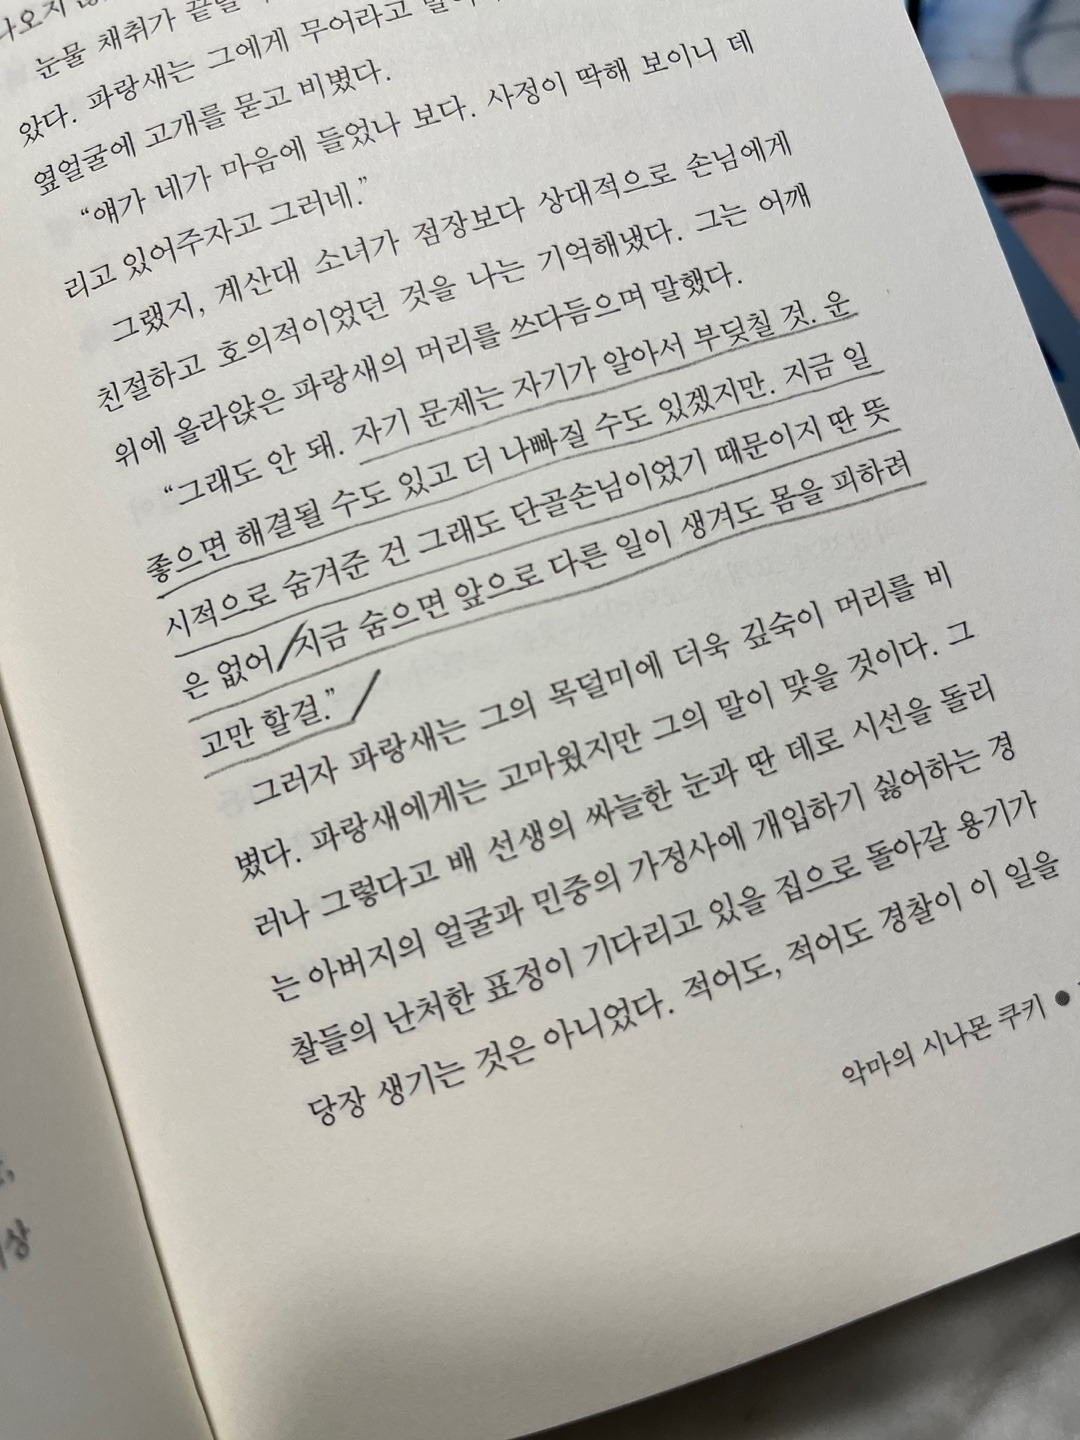 나오지
눈물 채취가 끝날
았다. 파랑새는 그에게 무어라고
옆얼굴에 고개를 묻고 비볐다.
“얘가 네가 마음에 들었나 보다. 사정이 딱해 보이니 데
리고 있어주자고 그러네.”
그랬지, 계산대 소녀가 점장보다 상대적으로 손님에게
친절하고 호의적이었던 것을 나는 기억해냈다. 그는 어깨
위에 올라앉은 파랑새의 머리를 쓰다듬으며 말했다.
“그래도 안 돼. 자기 문제는 자기가 알아서 부딪칠 것. 운
좋으면 해결될 수도 있고 더 나빠질 수도 있겠지만. 지금 일
시적으로 숨겨준 건 그래도 단골손님이었기 때문이지 딴 뜻
은 없어. 지금 숨으면 앞으로 다른 일이 생겨도 몸을 피하려
고만 할걸.”
그러자 파랑새는 그의 목덜미에 더욱 깊숙이 머리를 비
볐다. 파랑새에게는 고마웠지만 그의 말이 맞을 것이다. 그
러나 그렇다고 배 선생의 싸늘한 눈과 딴 데로 시선을 돌리
는 아버지의 얼굴과 민중의 가정사에 개입하기 싫어하는 경
찰들의 난처한 표정이 기다리고 있을 집으로 돌아갈 용기가
당장 생기는 것은 아니었다. 적어도, 적어도 경찰이 이 일을
악마의 시나몬 쿠키 ●